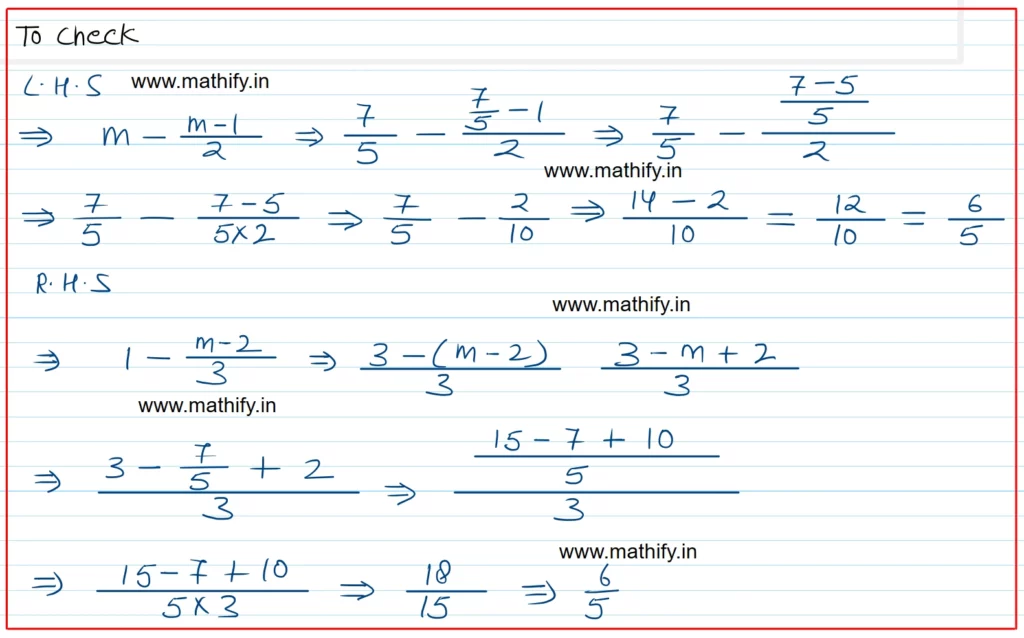 To check
L.H.S www.mathify.in
⇒ m - (m-1)/2 ⇒ 7/5 - (7/5 - 1)/2 ⇒ 7/5 - ((7-5)/5)/2
www.mathify.in
⇒ 7/5 - (7-5)/(5×2) ⇒ 7/5 - 2/10 ⇒ (14-2)/10 = 12/10 = 6/5
R.H.S
www.mathify.in
⇒ 1 - (m-2)/3 ⇒ (3-(m-2))/3 (3-m+2)/3
www.mathify.in
⇒ (3 - 7/5 + 2)/3 ⇒ ((15-7+10)/5)/3
www.mathify.in
⇒ (15-7+10)/(5×3) ⇒ 18/15 ⇒ 6/5